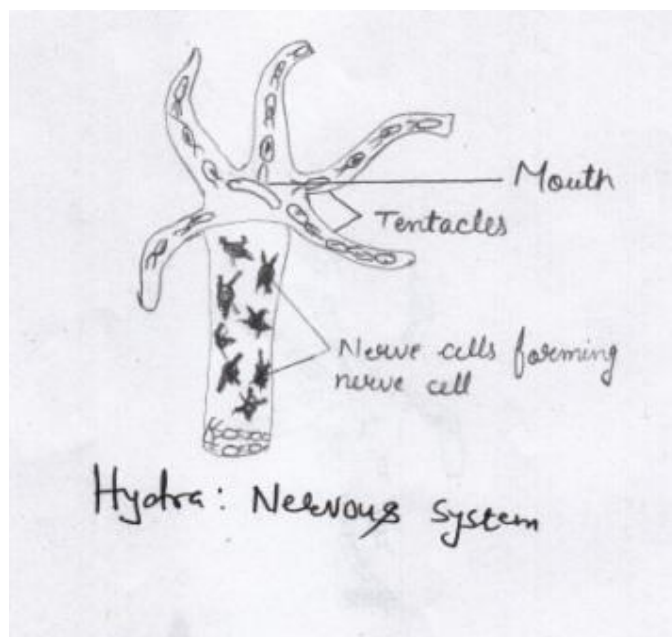 Mouth
Tentacles
Nerve cells forming
nerve cell
Hydra: Nervous system